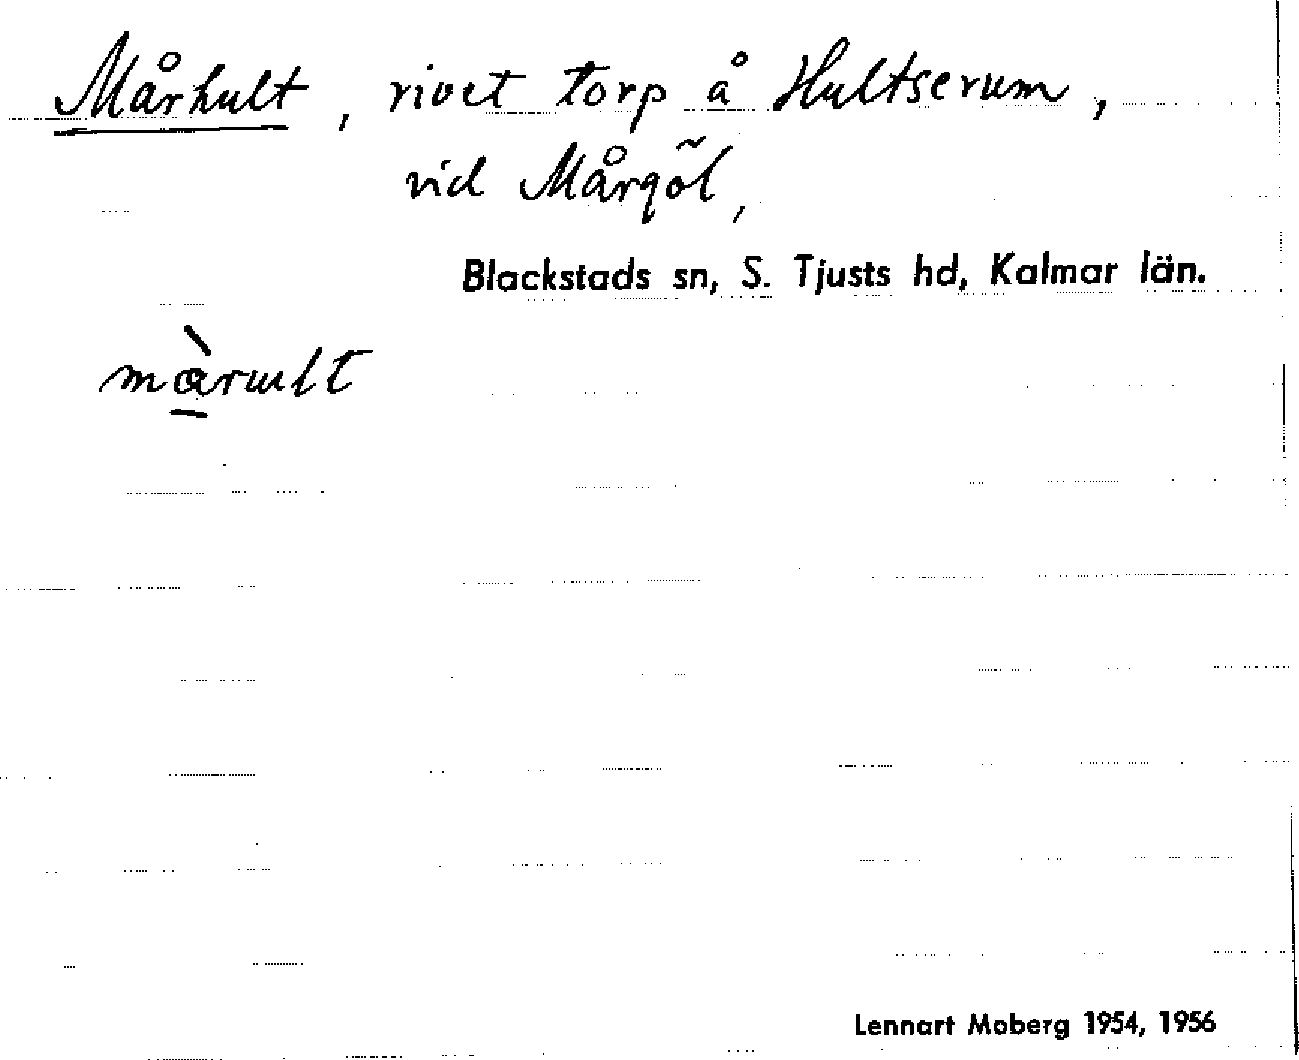 Mårhult, rivet torp å Hultserum,
vid Mårgöl,
Blackstads sn, S. Tjusts hd, Kalmar län.
màrult
Lennart Moberg 1954, 1956